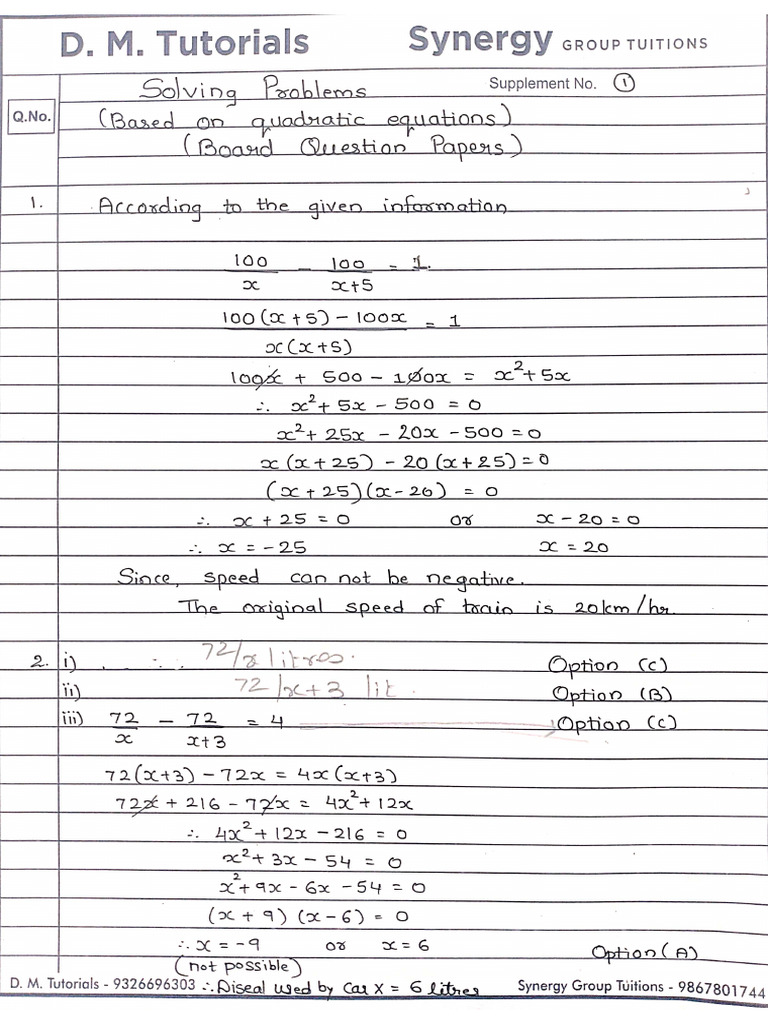 D. M. Tutorials Synergy GROUP TUITIONS
Solving Problems Supplement No. ①
Q.No. (Based on quadratic equations)
(Board Question Papers)
1. According to the given information
100/x - 100/(x+5) = 1.
(100(x+5) - 100x)/(x(x+5)) = 1
100x + 500 - 100x = x² + 5x
∴ x² + 5x - 500 = 0
x² + 25x - 20x - 500 = 0
x(x+25) - 20(x+25) = 0
(x+25)(x-20) = 0
∴ x + 25 = 0 or x - 20 = 0
∴ x = -25 x = 20
Since, speed can not be negative.
The original speed of train is 20km/hr.
2. i) 72/x litres. Option (C)
ii) 72/x+3 lit. Option (B)
iii) 72/x - 72/(x+3) = 4 Option (C)
72(x+3) - 72x = 4x(x+3)
72x + 216 - 72x = 4x² + 12x
∴ 4x² + 12x - 216 = 0
x² + 3x - 54 = 0
x² + 9x - 6x - 54 = 0
(x + 9) (x - 6) = 0
∴ x = -9 or x = 6 Option (A)
(not possible)
D. M. Tutorials - 9326696303 ∴ Diseal used by Car X = 6 litres Synergy Group Tuitions - 9867801744